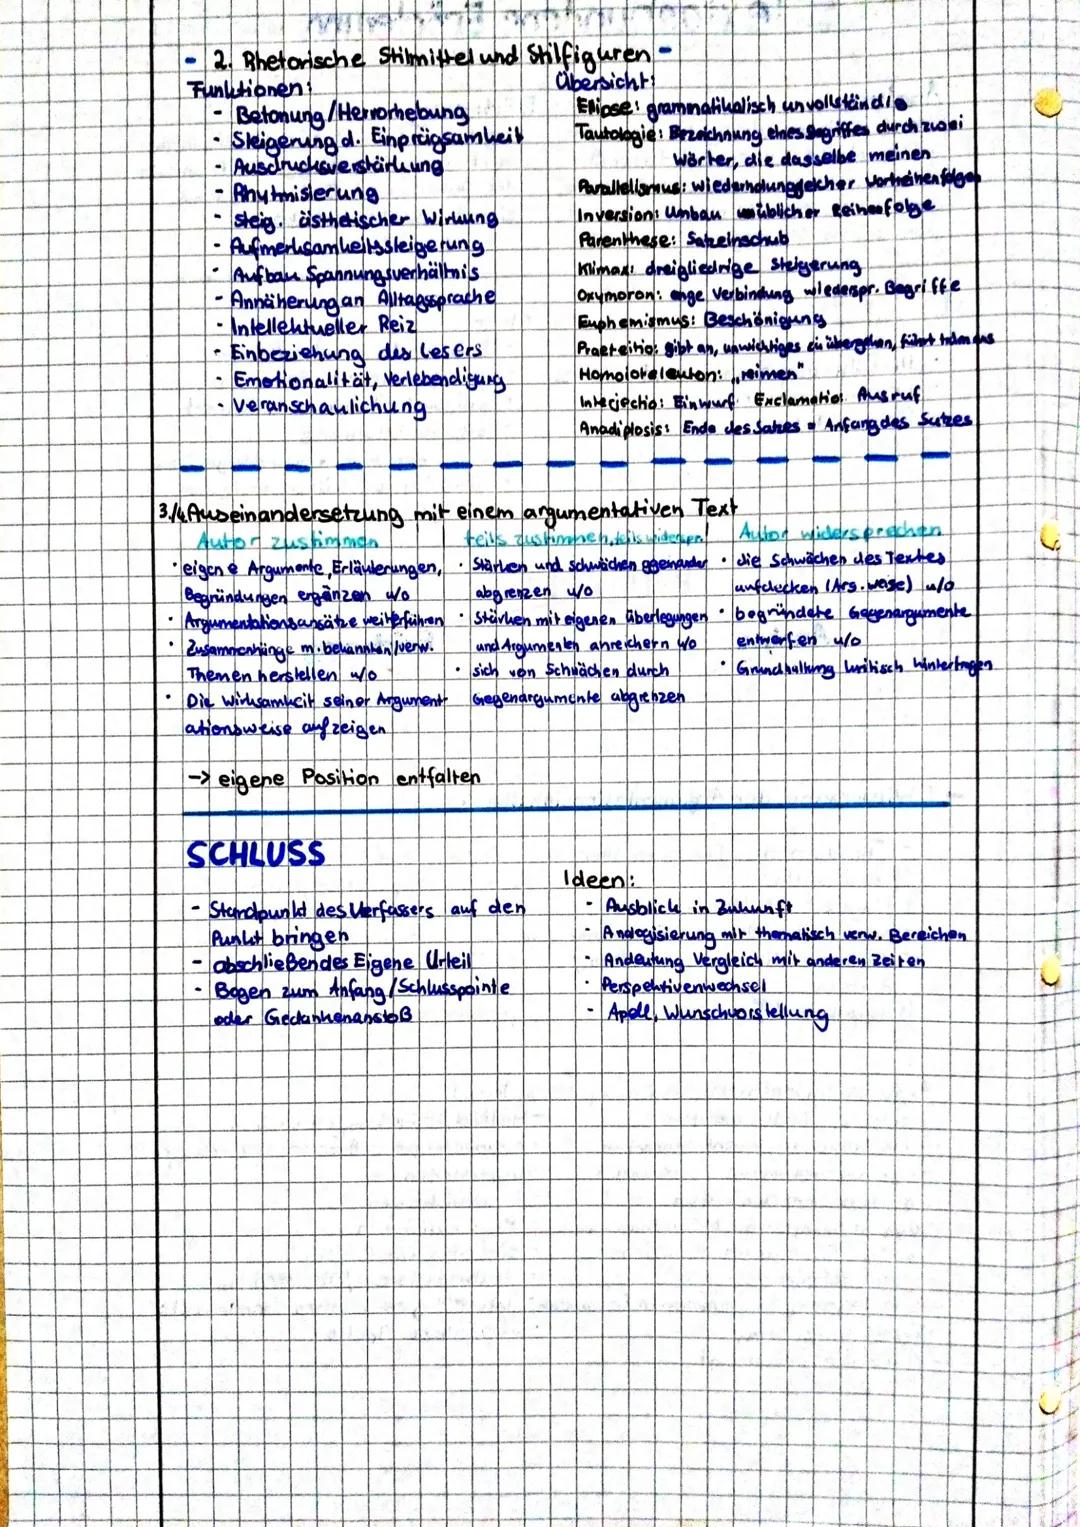 - 2. Rhetorische Stilmittel und Stilfiguren -
Funktionen:
- Betonung/Hervorhebung
- Steigerung d. Einprägsamkeit
- Ausdrucksverstärkung
- Rhytmisierung
- Steig. ästhetischer Wirkung
- Aufmerksamkeitssteigerung
- Aufbau Spannungsverhältnis
- Annäherung an Alltagssprache
- Intellektueller Reiz
- Einbeziehung des Lesers
- Emotionalität, Verlebendigung
- Veranschaulichung
Übersicht:
Ellipse: grammatikalisch unvollständig
Tautologie: Bezeichnung eines Begriffes durch zwei
Wörter, die dasselbe meinen
Parallelismus: Wiederholung gleicher Wortreihenfolgen
Inversion: Umbau unüblicher Reihenfolge
Parenthese: Satzeinschub
Klimax: dreigliedrige Steigerung
Oxymoron: enge Verbindung wiederspr. Begriffe
Euphemismus: Beschönigung
Praeteitio: gibt an, unwichtiges zu übergehen, führt trdm aus
Homoioteleuton: „reimen"
Interjectio: Einwurf Exclamatio: Ausruf
Anadiplosis: Ende des Satzes = Anfang des Satzes
3./4. Auseinandersetzung mit einem argumentativen Text
Autor zustimmen
• eigene Argumente, Erläuterungen,
Begründungen ergänzen u/o
• Argumentationsansätze weiterführen
• Zusammenhänge m. bekannten/verw.
Themen herstellen u/o
• Die Wirksamkeit seiner Argument-
ationsweise aufzeigen
teils zustimmen, teils widerspr.
• Stärken und schwächen ggeinander
abgrenzen u/o
• Stärken mit eigenen Überlegungen
und Argumenten anreichern u/o
• sich von Schwächen durch
Gegenargumente abgrenzen
Autor widersprechen
• die Schwächen des Textes
aufdecken (Arg.weise) u/o
• begründete Gegenargumente
entwerfen u/o
• Grundhaltung kritisch hinterfragen
-> eigene Position entfalten
SCHLUSS
- Standpunkt des Verfassers auf den
Punkt bringen
- abschließendes Eigene Urteil
- Bogen zum Anfang/Schlusspointe
oder Gedankenanstoß
Ideen:
- Ausblick in Zukunft
- Analogisierung mit thematisch verw. Bereichen
- Andeutung Vergleich mit anderen Zeiten
- Perspektivenwechsel
- Apell, Wunschvorstellung